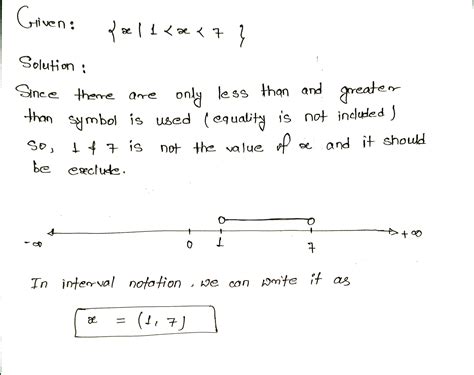 Given: {x | 1 < x < 7 }
Solution :
Since there are only less than and greater
than symbol is used (equality is not included)
So, 1 & 7 is not the value of x and it should
be exclude.
-∞ 0 1 7 +∞
In interval notation, we can write it as
x = (1, 7)